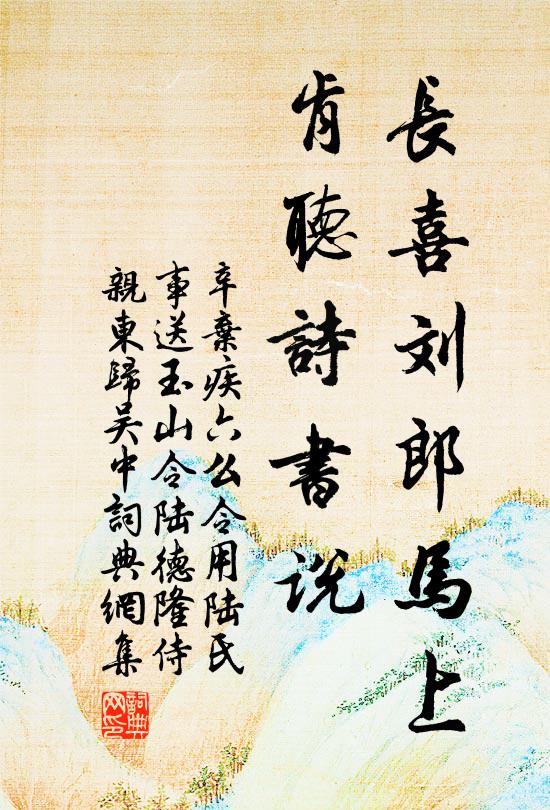 長喜刘郎馬上
肯聽詩書説
辛棄疾六么令用陸氏
事送玉山令陸德隆侍
親東歸吴中詞典網集
詞典网印